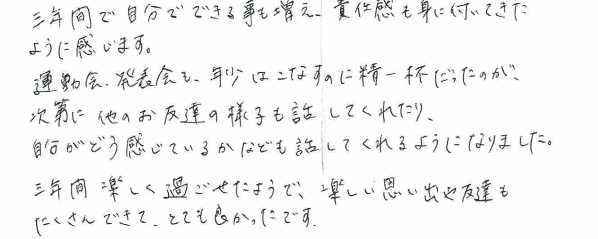 三年間で自分でできる事も増え、責任感も身に付いてきた
ように感じます。
運動会、発表会も、年少はこなすのに精一杯だったのが、
次第に他のお友達の様子も話してくれたり、
自分がどう感じているかなども話してくれるようになりました。
三年間楽しく過ごせたようで、楽しい思い出や友達も
たくさんできて、とても良かったです。